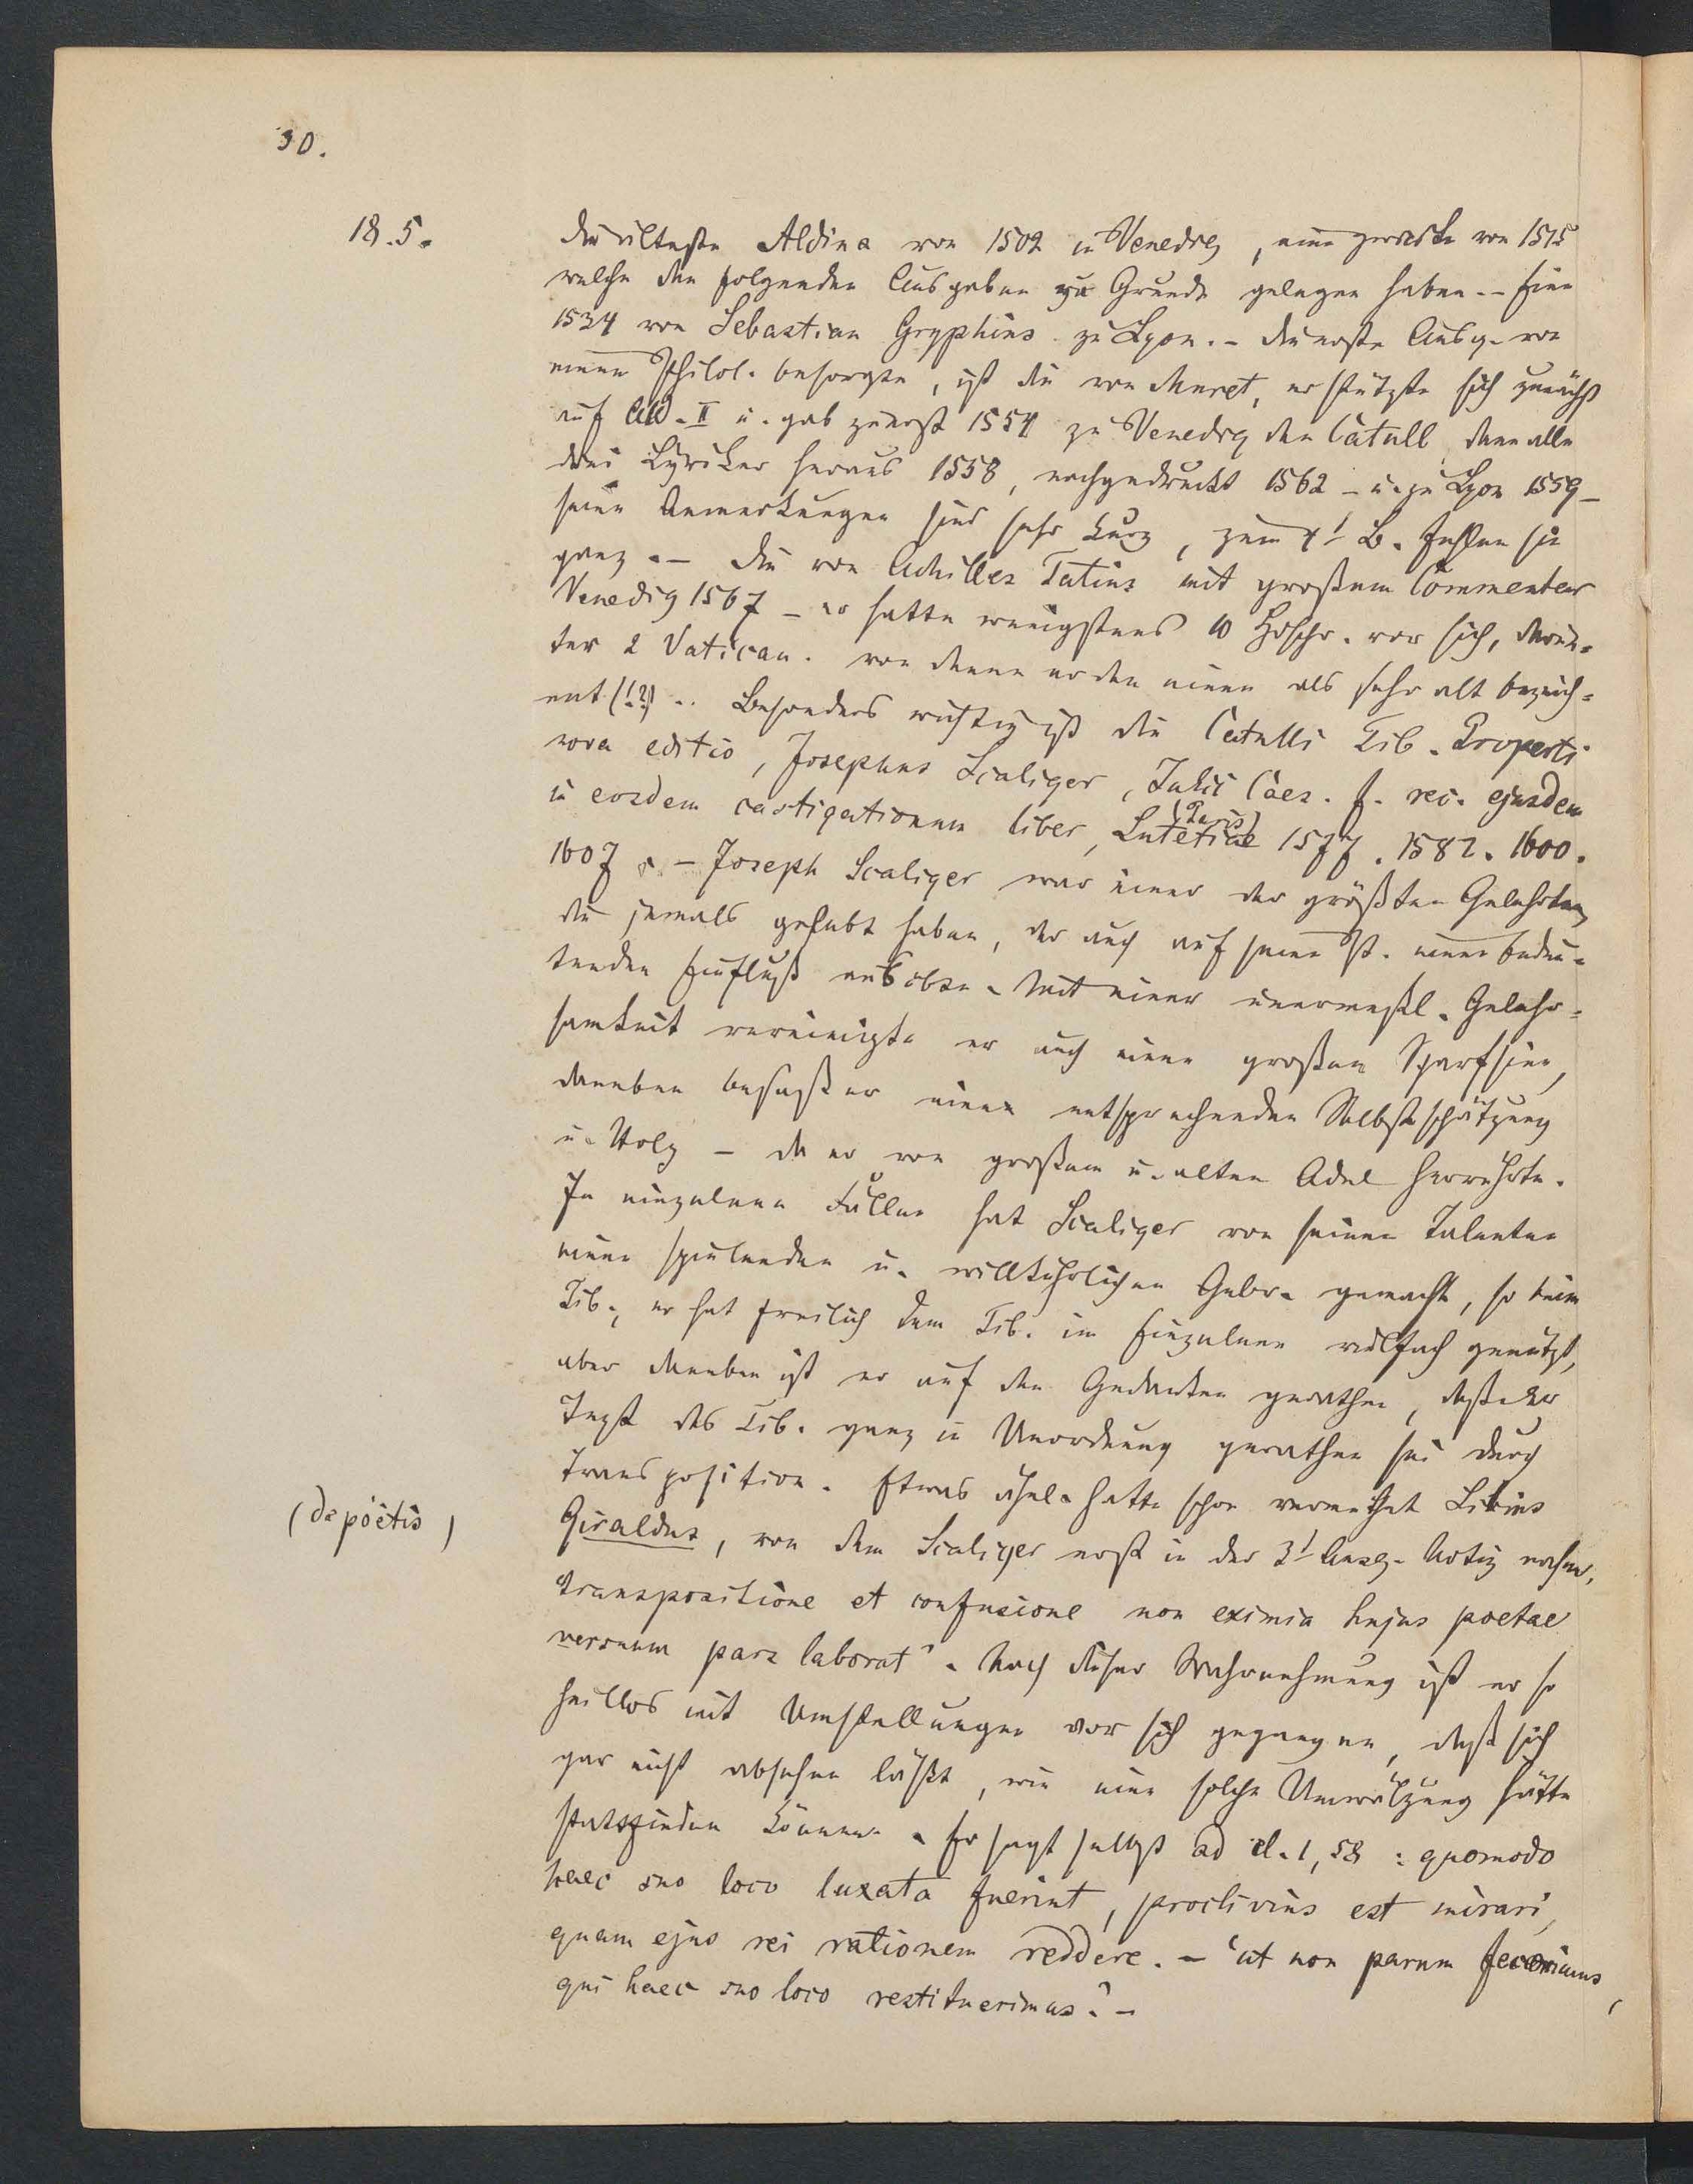 30.
18.5.
die älteste Aldina von 1502 in Venedig, eine zweite von 1515
welche den folgenden Ausgaben zu Grunde gelegen haben. – Eine
1534 von Sebastian Gryphius zu Lyon. – die erste Ausg. von
einem Philol. besorgte, ist die von Muret, er stützte sich zunächst
auf Ald. II u. gab zuerst 1554 zu Venedig den Catull, dann alle
drei Lyriker heraus 1558, nachgedruckt 1562 – u. zu Lyon 1559 –
seine Anmerkungen sind sehr kurz, zum 4! B. fehlen sie
ganz. – die von Achilles Tatius mit großem Commentar
Venedig 1567 – er hatte wenigstens 10 Hdschr. vor sich, darun=
ter 2 Vatican. von denen er den einen als sehr alt bezeich=
net (!?) .. Besonders wichtig ist die Catulli Tib. Properti
nova editio, Josephus Scaliger, Julii Caes. f. rec. ejusdem
in eosdem castigationum liber, Lutetiae (Paris) 1577. 1582. 1600.
1607. – Joseph Scaliger war einer der größten Gelehrten,
die jemals gelebt haben, der auch auf seine St. einen bedeu=
tenden Einfluß ausübte. Mit einer unermeßl. Gelehr=
samkeit vereinigte er auch einen großen Scharfsinn,
daneben besaß er einen entsprechenden Selbstschätzung
u. Stolz – da er von großem u. altem Adel herrührte.
In einzelnen Fällen hat Scaliger von seinen Talenten
einen spielenden u. willkührlichen Gebr. gemacht, so beim
Tib., er hat freilich dem Tib. im Einzelnen vielfach genützt,
aber daneben ist er auf den Gedanken gerathen, daß der
Text des Tib. ganz in Unordnung gerathen sei durch
Transposition. Etwas ähnl. hatte schon vermuthet Lilius
(de poetis)
Giraldus, von dem Scaliger erst in der 3! Ausg. Notiz nahm,
transpositione et confusione non eximia hujus poetae
versuum pars laborat'. Nach dieser Wahrnehmung ist er so
heillos mit Umstellungen vor sich gegangen, daß sich
gar nicht absehen läßt, wie eine solche Umwälzung hätte
stattfinden können. Er sagt selbst ad el. 1, 58 : quomodo
haec suo loco luxata fuerint, proclivius est mirari,
quam ejus rei rationem reddere. – 'ut non parum fecerimus,
qui haec suo loco restituerimus.' –